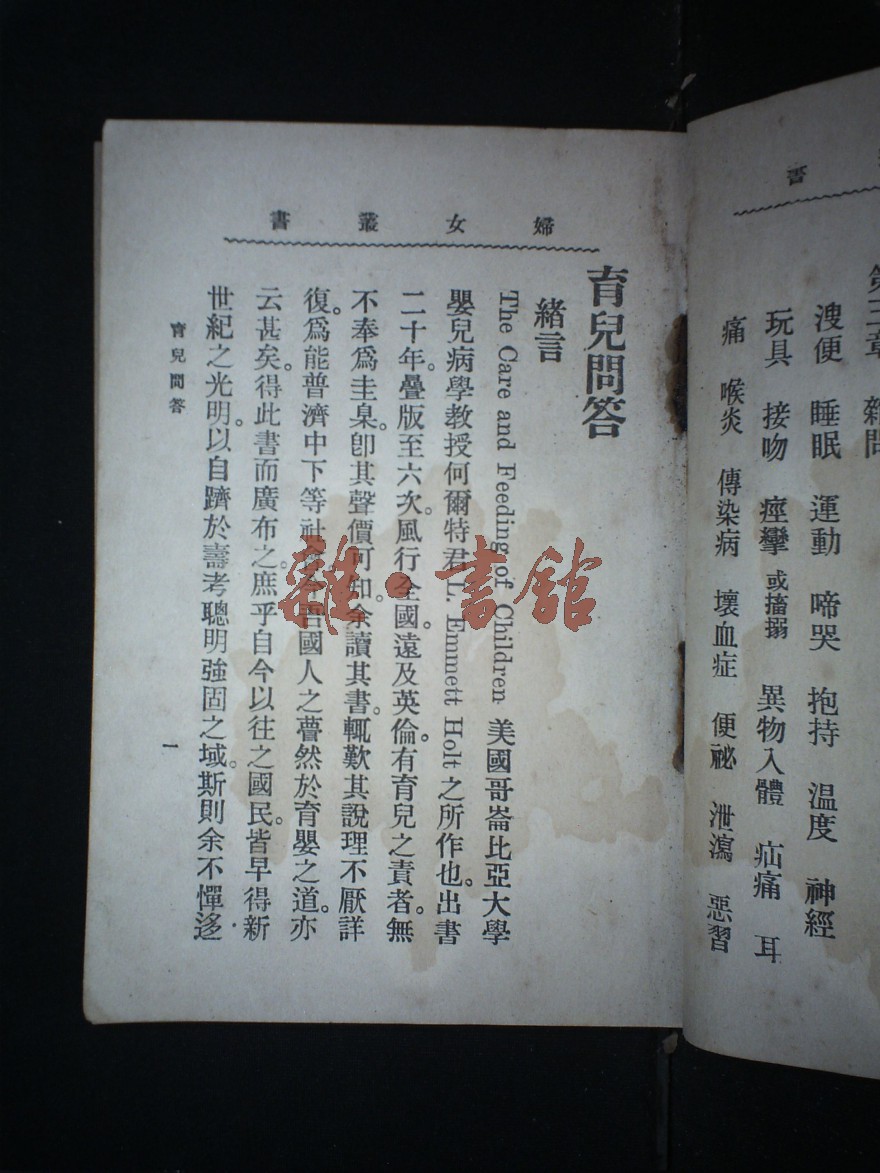 書
第三章 雜問
溲便 睡眠 運動 啼哭 抱持 温度 神經
玩具 接吻 痙攣 或搐搦 異物入體 疝痛 耳
痛 喉炎 傳染病 壞血症 便祕 泄瀉 惡習
婦女叢書
育兒問答
緒言
The Care and Feeding of Children 美國哥崙比亞大學
嬰兒病學教授何爾特君 L. Emmett Holt 之所作也。出書
二十年。疊版至六次。風行全國。遠及英倫。有育兒之責者。無
不奉爲圭臬。卽其聲價可知。余讀其書。輒歎其說理不厭詳
復。爲能普濟中下等社會今吾國人之瞢然於育嬰之道。亦
云甚矣。得此書而廣布之。庶乎自今以往之國民。皆早得新
世紀之光明。以自躋於壽考聰明強固之域。斯則余不憚迻
育兒問答
一
雜·書館